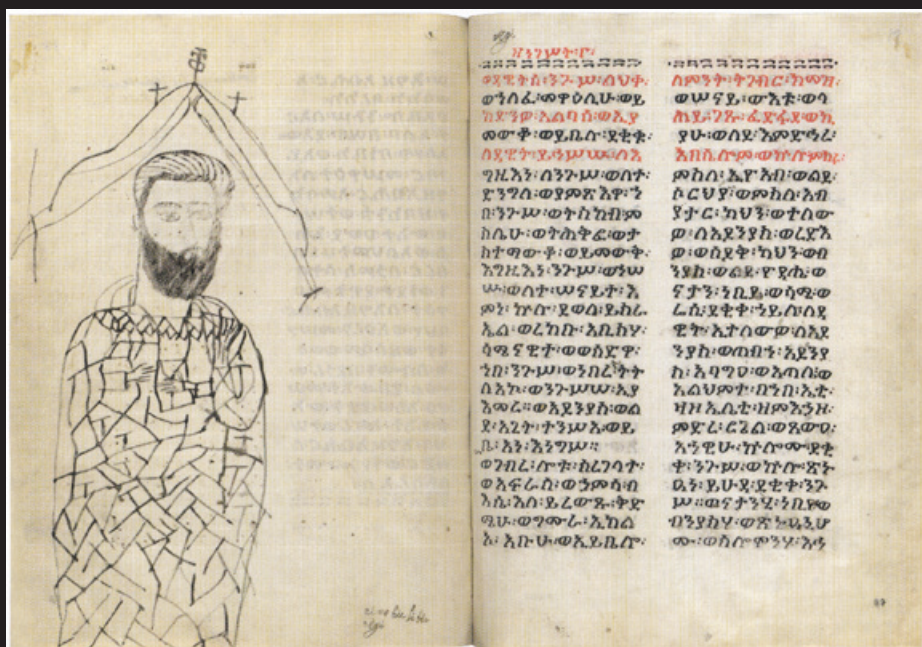 ዘነገሥት፡፫፡
ወዳዊትሰ፡ንጉሥ፡ልህቀ፡
ወኀለፈ፡መዋዕሊሁ፡ወይ
ከድንዎ፡አልባሰ፡ወኢያ
መውቆ፡ወይቤሉ፡ደቂቁ፡
ለዳዊት፡ይኅሥሡ፡ለእ
ግዚእነ፡ለንጉሥ፡ወለተ፡
ድንግለ፡ወያምጽእዋ፡ኀ
በ፡ንጉሥ፡ወትስክብ፡ም
ስሌሁ፡ወትሕቅፎ፡ወታ
ስተማውቆ፡ወይመውቅ፡
እግዚእነ፡ንጉሥ፡ወኀሠ
ሡ፡ወለተ፡ሠናይተ፡እ
ምነ፡ኵሉ፡ደወለ፡ይስራ
ኤል፡ወረከቡ፡አቢስሃ፡
ሳሜናዊተ፡ወወሰድዋ፡
ኀበ፡ንጉሥ፡ወነበረት፡ት
ለአኮ፡ወንጉሥሰ፡ኢያ
እመራ፡፡ወአዶንያስ፡ወል
ደ፡አጊት፡ተንሥአ፡ወይ
ቤ፡አነ፡እነግሥ፡፡
ወገብረ፡ሎቱ፡ሰረገላተ፡
ወአፍራሰ፡ወኃምሳ፡ብ
እሴ፡እለ፡ይረውጹ፡ቅድ
ሜሁ፡ወግሙራ፡ኢከል
ኦ፡አቡሁ፡ወኢይቤሎ፡
ለምንት፡ትገብር፡ከመዝ፡
ወሠናይ፡ውእቱ፡ወላ
ሕይ፡ገጹ፡ፈድፋደ፡ወኪ
ያሁ፡ወለደ፡እምድኅረ፡
አቤሴሎም፡
ምስለ፡ኢዮአብ፡ወልደ፡
ሶርህያ፡ወምስለ፡አብ
ያታር፡ካህን፡ወተለው
ዎ፡ለአዶንያስ፡ወረድእ
ዎ፡ወሳዶቅ፡ካህን፡ወበ
ንያስ፡ወልደ፡ዮዳሔ፡ወ
ናታን፡ነቢይ፡ወሳሚ፡ወ
ሬሲ፡ደቂቀ፡ኀይሉ፡ለዳ
ዊት፡ኢተለውዎ፡ለአዶ
ንያስ፡ወጠብኀ፡አዶንያ
ስ፡አባግዐ፡ወአጣሊ፡ወ
አልህምተ፡በኀበ፡
ምድረ፡ሮጌል፡ወጸውዐ፡
አኀዊሁ፡ኵሎሙ፡ደቂ
ቀ፡ንጉሥ፡ወኵሎ፡ጽኑ
ዓነ፡ይሁዳ፡ደቂቀ፡ንጉ
ሥ፡፡ወናታንሃ፡ነቢየ፡ወ
በንያስሃ፡ወጽኑዓኒሁ
ሙ፡ወሰሎሞንሃ፡እኅ